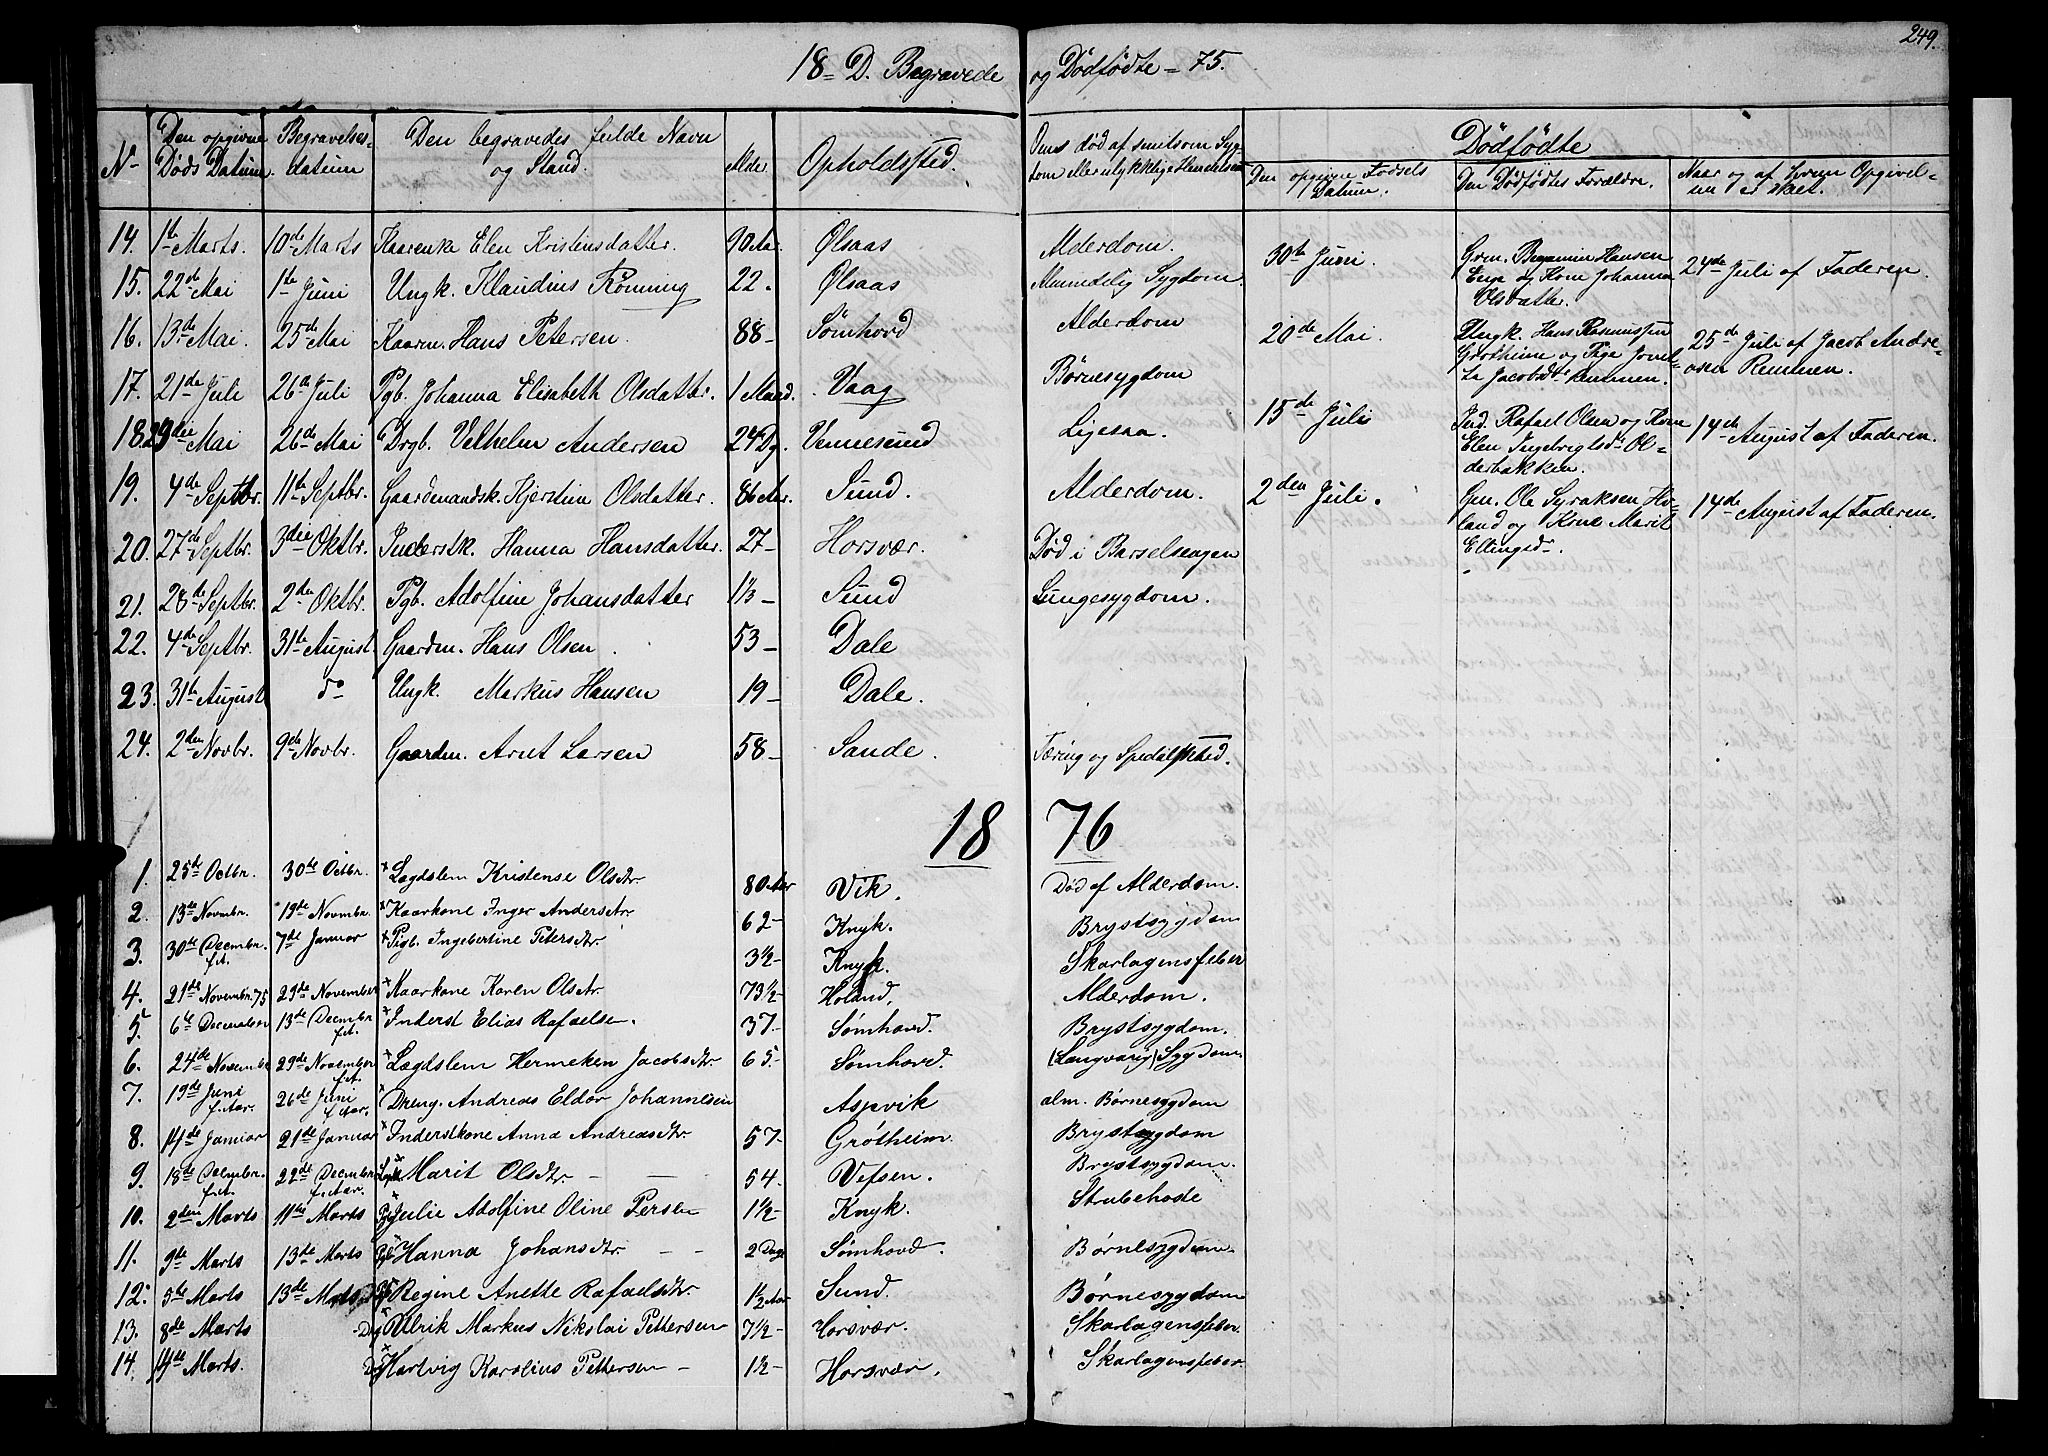 249.
18 D. Begravede og Dödfödte 75.
No Den opgivne Döds Datum. Begravelses-datum Den begravedes fulde Navn og Stand. Alder Opholdssted. Oms död af smitsom Syg-dom eller ulykkelig Hendelse Dödfödte
Den opgivne Födsels Datum. Den Dödfödtes Forældre. Naar og af hvem Opgivel-sen er skeet.
14. 1te Marts. 10de Marts Kaarenke Elen Kristinsdatter. 90 Aar. Ølsaas Alderdom.
15. 22de Mai 1te Juni Ungk. Klaudius Rönning 22. Ølsaas Almindelig Sygdom.
16. 13de Mai. 25de Mai Kaarm. Hans Petersen. 88- Sömhovd Alderdom
17. 21de Juli 26de Juli Pgb. Johanna Elisabeth Olsdatter. 1 Maaned. Vaag Börnesygdom
18. 29de Mai 26de Mai Drgb. Velhelm Andersen 24 Dg. Vennesund Ligesaa.
19. 4de Septbr. 11te Septbr. Gaardmandsk. Kjerstin Olsdatter. 86 Aar. Sund. Alderdom.
20. 27de Septbr. 3die Oktbr. Inderstk. Hanna Hansdatter. 27- Horsvær. Död i Barselsengen
21. 28de Septbr. 2den Oktbr. Pgb. Adolfine Johansdatter 1⅓- Sund Lungesygdom.
22. 4de Septbr. 31te August Gaardm. Hans Olsen 53- Dale
23. 31te August do Ungk. Markus Hansen 19- Dale.
24. 2den Novbr. 9de Novbr. Gaardm. Arnt Larsen 58- Sande. Tæring og Spedalskhed.
30te Juni. Grm. Benjamin Hansen
Enge og Kone Johanna
Olsdatter. 24de Juli af Faderen.
20de Mai. Ungk. Hans Rasmussen
Grötheim og Pige
Jacobsdt. Remmen. 25de Juli af Jacob Andre-
asen Remmen.
15de Juli Ind. Rafael Olsen og Kone
Elen Ol-
derbakken. 14de August af Faderen.
2den Juli. Gm. Ole Syraksen Ho-
land og Kone Marit
Ellingsd. 14de August af Faderen.
18 76
1. 25de Octbr. 30te Octbr. Lægdslem Kristense Olsdtr. 80 Aar Vik. Död af Alderdom.
2. 13de Novmbr. 19de Novmbr. Kaarkone Inger Andersdtr. 62- Knyk. Brystsygdom
3. 30te Decembr. f.A. 7de Januar Pigb. Ingebertine Petersdtr. 3½- Knyk. Skarlagensfeber
4. 21de Novembr. 75 29de November Kaarkone Karen Olsdtr. 73½- Holand. Alderdom.
5. 6te December 13de Decembr f.A. Inderst Elias Rafaelsen. 37- Sømhovd. Brystsygdom.
6. 24de Novembr 29de November f.A. Lægdslem Hermeken Jacobsdtr. 65- Sømhovd. (Langvarig) Sygdom.
7. 19de Juni f. Aar. 26de Juni f. Aar. Dreng. Andreas Eldor Johannesen Aspvik alm. Børnesygdom
8. 14de Januar 21de Januar Inderstkone Anna Andreasdtr. 57- Grøtheim. Brystsygdom
9. 18de Decembr. f.A. 22de Decembr f. Aar. Marit Olsdtr. 54. Vefsen. Brystsygdom.
10. 2den Marts 11te Marts Pgb Julie Adolfine Oline Persen 1½- Knyk. Strubehoste
11. 9de Marts 13de Marts Pgb Hanna Johansdtr. 2 Dage Sømhovd. Børnesygdom
12. 5te Marts 13de Marts Pgb Regine Anette Rafaelsdtr. 1½ Aar Sund. Børnesygdom
13. 8de Marts Dgb Ulrik Markus Nikolai Pettersen 7½- Horsvær. Skarlagensfeber.
14. 14de Marts. Dgb Hartvig Karolius Pettersen 1½- Horsvær. Skarlagensfeber